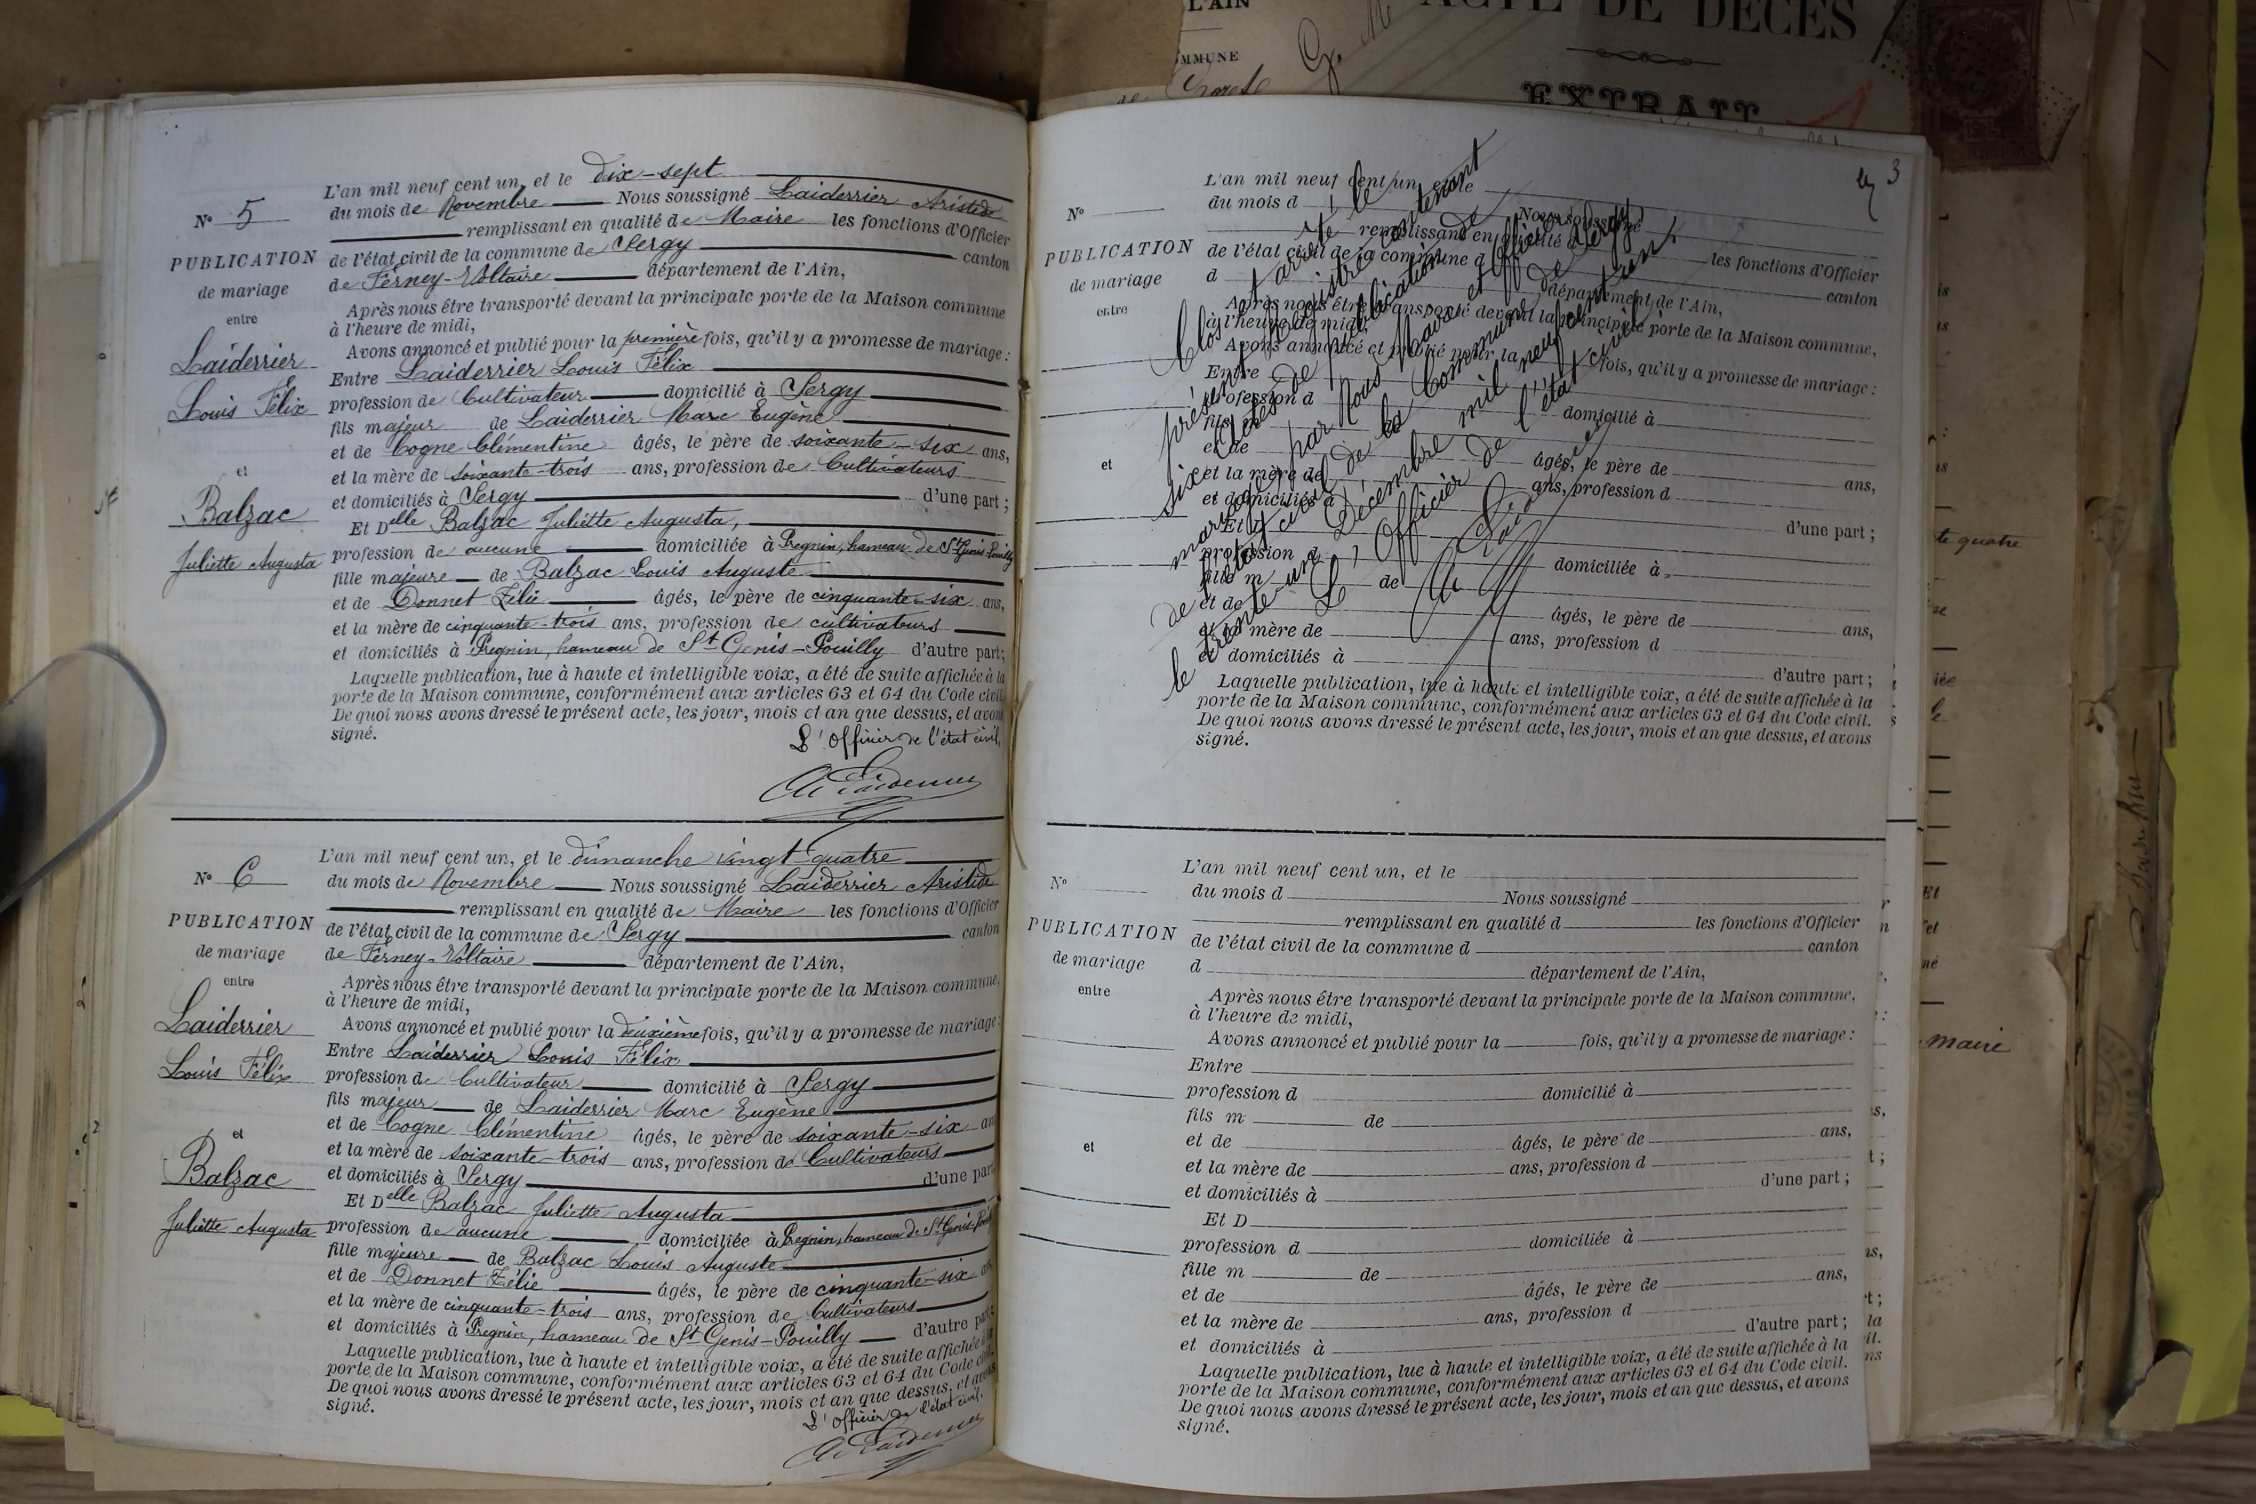 L'AIN
MMUNE
ACTE DE DÉCÈS
EXTRAIT
L'an mil neuf cent un, et le dix-sept
N° 5
du mois de Novembre Nous soussigné Laiderrier Aristide
remplissant en qualité de Maire les fonctions d'Officier
PUBLICATION
de l'état civil de la commune de Sergy canton
de mariage
de Ferney-Voltaire département de l'Ain,
entre
Après nous être transporté devant la principale porte de la Maison commune
à l'heure de midi,
Avons annoncé et publié pour la première fois, qu'il y a promesse de mariage :
Laiderrier
Entre Laiderrier Louis Félix
Louis Félix
profession de Cultivateur domicilié à Sergy
fils majeur de Laiderrier Marc Eugène
et de Cogne Clémentine âgés, le père de soixante-six ans,
et
et la mère de soixante-trois ans, profession de Cultivateurs
et domiciliés à Sergy d'une part ;
Balzac
Et Delle Balzac Juliette Augusta,
Juliette Augusta
profession de aucune domiciliée à Pregnin, hameau de St Genis-Pouilly
fille majeure de Balzac Louis Auguste
et de Donnet Zélie âgés, le père de cinquante-six ans,
et la mère de cinquante-trois ans, profession de cultivateurs
et domiciliés à Pregnin, hameau de St Genis-Pouilly d'autre part ;
Laquelle publication, lue à haute et intelligible voix, a été de suite affichée à la
porte de la Maison commune, conformément aux articles 63 et 64 du Code civil
De quoi nous avons dressé le présent acte, les jour, mois et an que dessus, et avons
signé.
L'Officier de l'état civil,
A. Laiderrier
L'an mil neuf cent un, et le dimanche vingt-quatre
N° 6
du mois de Novembre Nous soussigné Laiderrier Aristide
remplissant en qualité de Maire les fonctions d'Officier
PUBLICATION
de l'état civil de la commune de Sergy canton
de mariage
de Ferney-Voltaire département de l'Ain,
entre
Après nous être transporté devant la principale porte de la Maison commune,
à l'heure de midi,
Laiderrier
Avons annoncé et publié pour la deuxième fois, qu'il y a promesse de mariage :
Entre Laiderrier Louis Félix
Louis Félix
profession de Cultivateur domicilié à Sergy
fils majeur de Laiderrier Marc Eugène
et de Cogne Clémentine âgés, le père de soixante-six an
et
et la mère de soixante-trois ans, profession de Cultivateurs
Balzac
et domiciliés à Sergy d'une part
Et Delle Balzac Juliette Augusta
Juliette Augusta
profession de aucune domiciliée à Pregnin, hameau de St Genis-Pouilly
fille majeure de Balzac Louis Auguste
et de Donnet Zélie âgés, le père de cinquante-six
et la mère de cinquante-trois ans, profession de Cultivateurs
et domiciliés à Pregnin, hameau de St Genis-Pouilly d'autre part ;
Laquelle publication, lue à haute et intelligible voix, a été de suite affichée à la
porte de la Maison commune, conformément aux articles 63 et 64 du Code civil.
De quoi nous avons dressé le présent acte, les jour, mois et an que dessus, et avons
signé.
L'Officier de l'état civil,
A. Laiderrier
3
L'an mil neuf cent un, et le
N°
du mois d Nous soussigné
remplissant en qualité d les fonctions d'Officier
PUBLICATION
de l'état civil de la commune d canton
de mariage
d département de l'Ain,
entre
Après nous être transporté devant la principale porte de la Maison commune,
à l'heure de midi,
Avons annoncé et publié pour la fois, qu'il y a promesse de mariage :
Entre
profession d domicilié à
fils m de
et de âgés, le père de ans,
et
et la mère de ans, profession d
et domiciliés à d'une part ;
Et D
profession d domiciliée à
fille m de
et de âgés, le père de ans,
et la mère de ans, profession d
et domiciliés à d'autre part ;
Laquelle publication, lue à haute et intelligible voix, a été de suite affichée à la
porte de la Maison commune, conformément aux articles 63 et 64 du Code civil.
De quoi nous avons dressé le présent acte, les jour, mois et an que dessus, et avons
signé.
Clos et arrêté le
présent registre contenant
six actes de publication de
mariage par Nous Maire et Officier
de l'état civil de la Commune de Sergy
le trente-un Décembre mil neuf cent un
L'Officier de l'état civil,
A. Laiderrier
L'an mil neuf cent un, et le
N°
du mois d Nous soussigné
remplissant en qualité d les fonctions d'Officier
PUBLICATION
de l'état civil de la commune d canton
de mariage
d département de l'Ain,
entre
Après nous être transporté devant la principale porte de la Maison commune,
à l'heure de midi,
Avons annoncé et publié pour la fois, qu'il y a promesse de mariage :
Entre
profession d domicilié à
fils m de
et de âgés, le père de ans,
et
et la mère de ans, profession d
et domiciliés à d'une part ;
Et D
profession d domiciliée à
fille m de
et de âgés, le père de ans,
et la mère de ans, profession d
et domiciliés à d'autre part ;
Laquelle publication, lue à haute et intelligible voix, a été de suite affichée à la
porte de la Maison commune, conformément aux articles 63 et 64 du Code civil.
De quoi nous avons dressé le présent acte, les jour, mois et an que dessus, et avons
signé.
quatre
maire